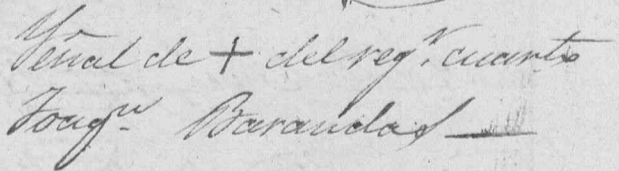 Señal de + del regr. cuarto
Joaqn. Barandas